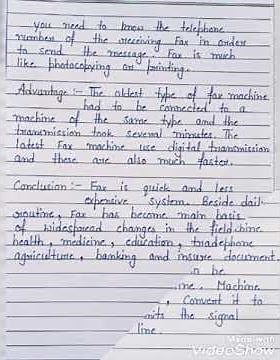 you need to know the telephone
number of the receiving Fax in order
to send the message. Fax is much
like photocopying or printing.
Advantage :- The oldest type of fax machine
had to be connected to a
machine of the same type and the
transmission took several minutes. The
latest Fax machine use digital transmission
and these are also much faster.
Conclusion :- Fax is quick and less
expensive system. Beside dail
routine, Fax has become main basis
of widespread changes in the field
health, medicine, education, tradephone
agriculture, banking and insure document.
n be
ine. Machine
, Convert it to
nits the signal
line.
Made with
VideoShow